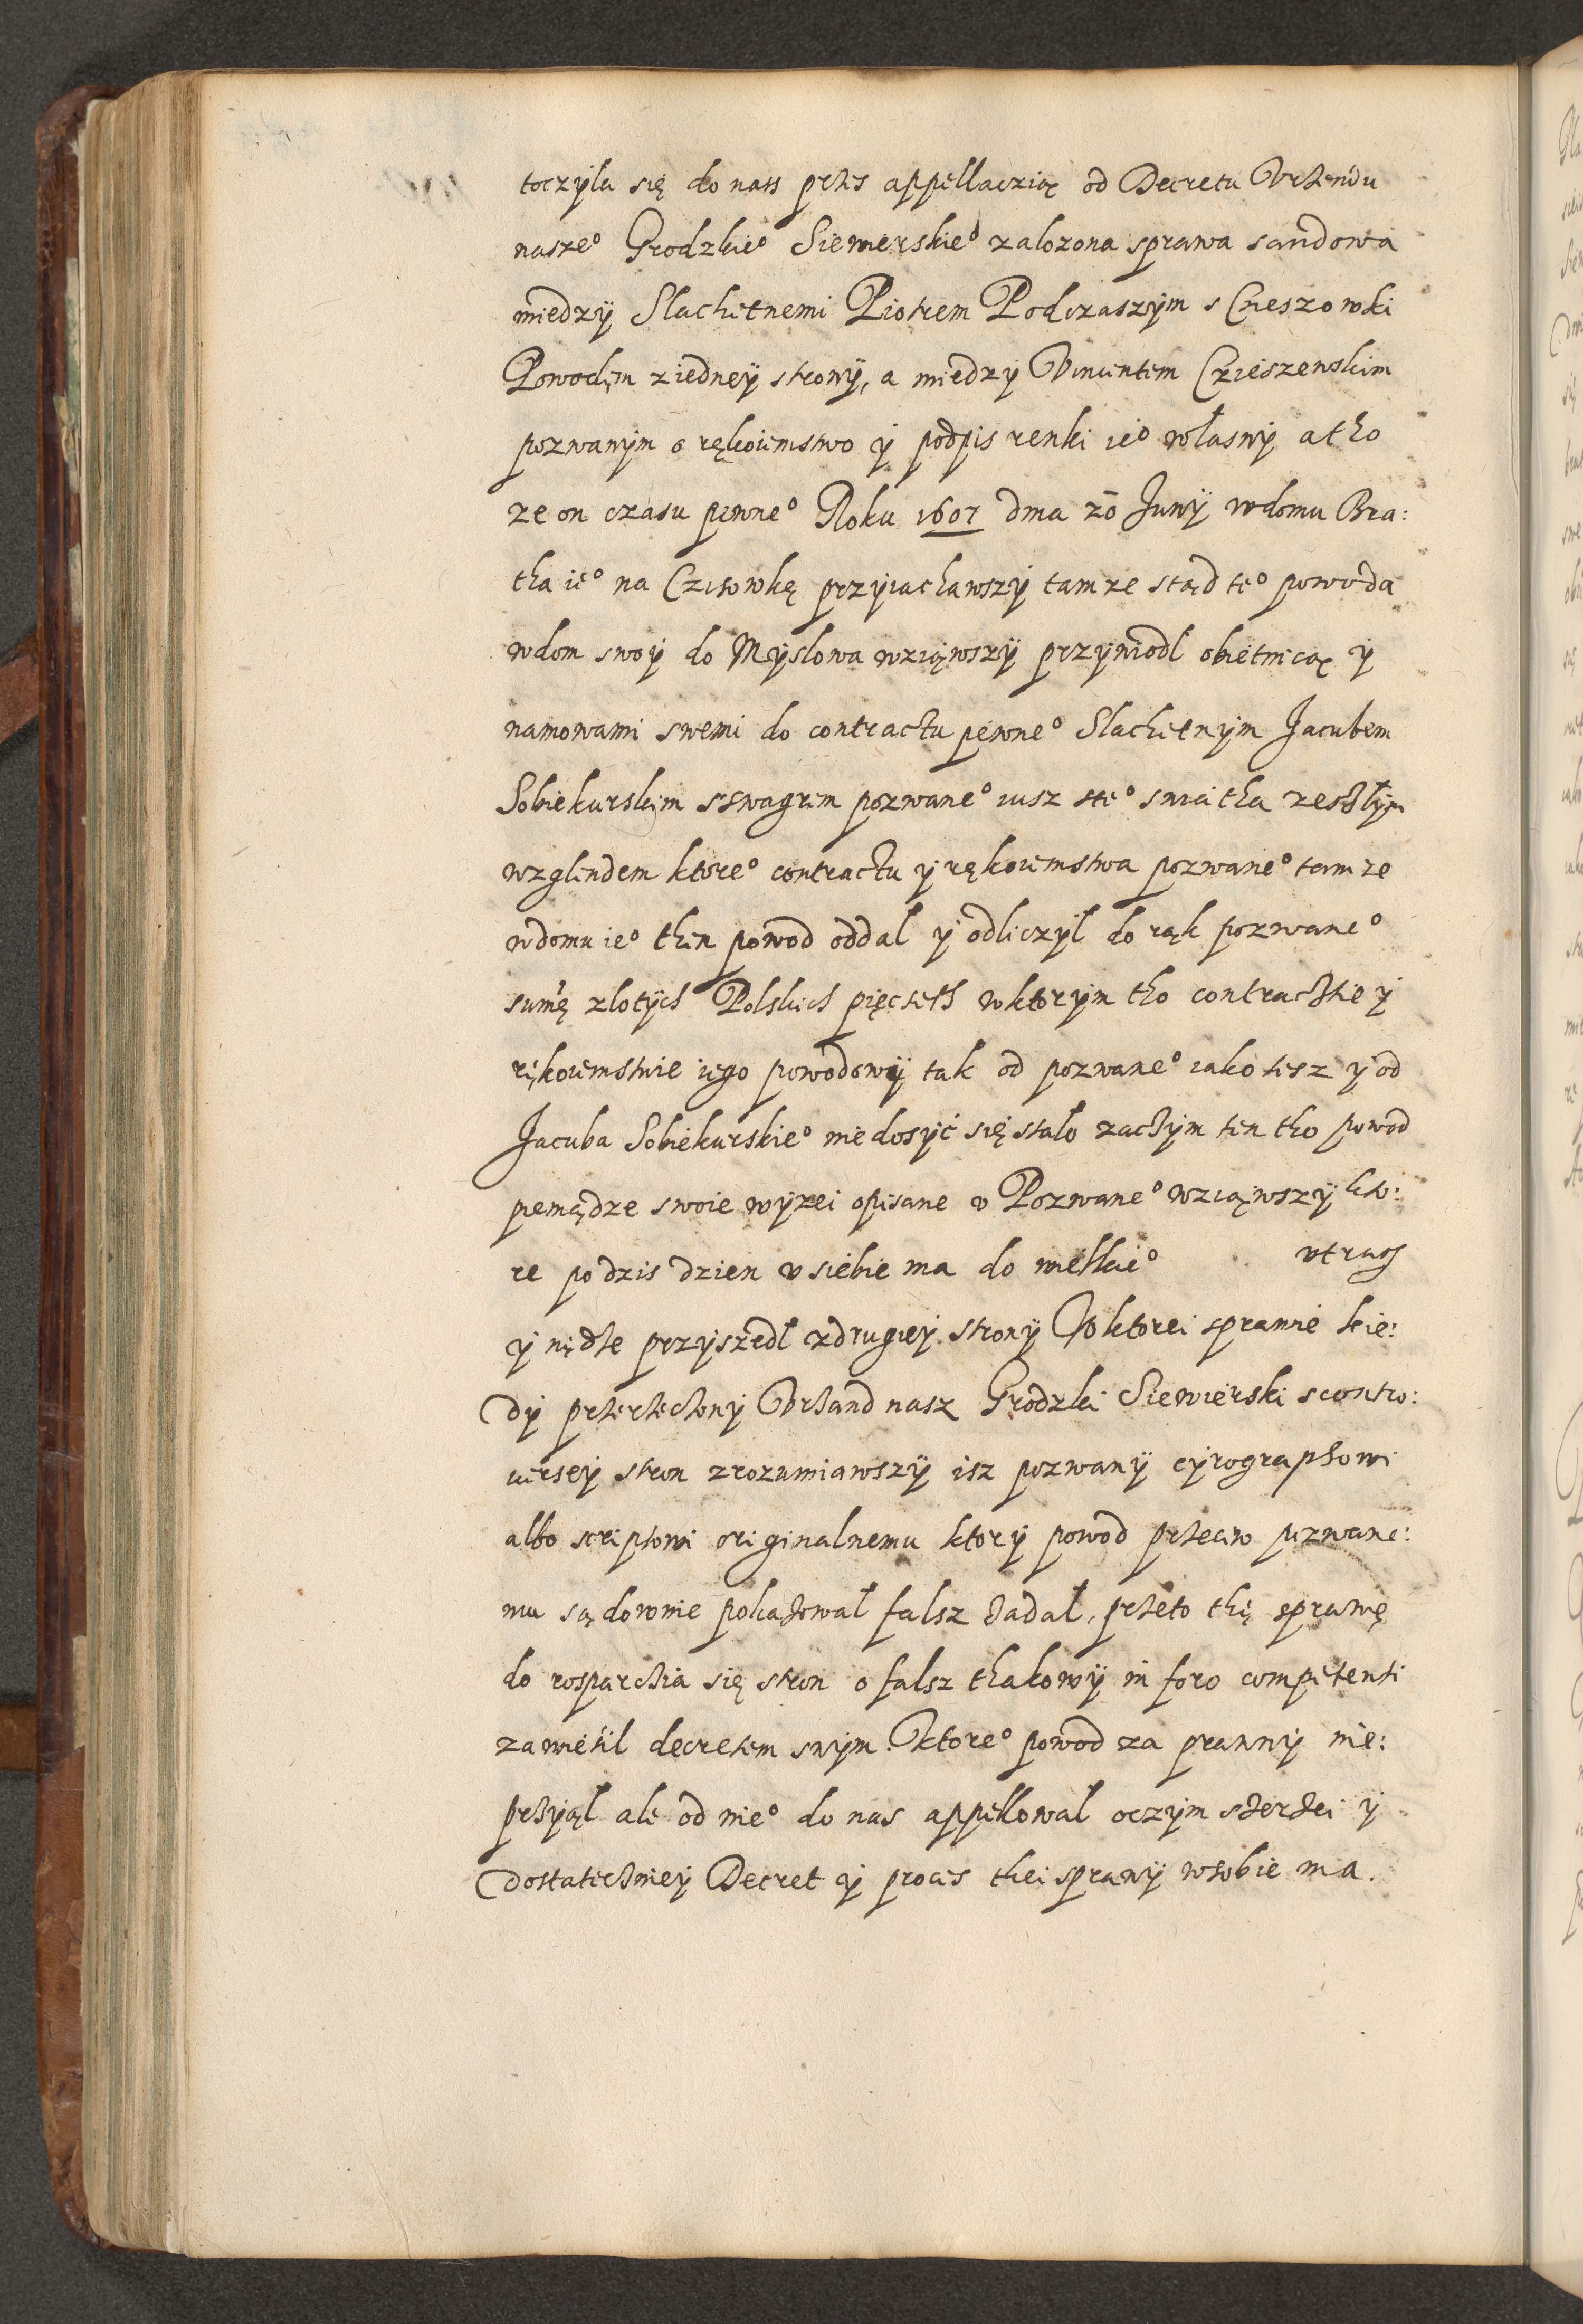 toczyla się do nass przes appellaczią od Decretu Vrzendu
nasze° Grodzkie° Siewierskie° zalozona sprawa sandowa
miedzÿ Slachetnemi Piotrem Podczaszÿm s Czieszowki
Powodęm z iednëÿ stronÿ, a miedzy Vincentem Czieszewskim
pozwanÿm o rękoiemstwo ÿ podpis renki ie° własnÿ a tho
ze on czasu pewne° Roku 1607 dnia 20 Junÿ w domu Bra:
tha ie° na Czisowkę przÿiachawszÿ tamze stąd te° powoda
w dom swoÿ do Mÿslowa wziąwszÿ przÿwiodl obietnicą ÿ
namowami swemi do contractu pewne° Slachetnÿm Jacubem
Sobiekurskim sswagrem pozwane° iusz ste° swiatha zeszłÿm
wzglendem ktore° contractu ÿ rękoiemstwa pozwane° tamze
w domu ie° then powod oddal ÿ odliczÿl do rąk pozwane°
sumę zlotÿch Polskich pięcseth w ktorÿm tho contrachie ÿ
rękoiemstwie iego powodowÿ tak od pozwane° iako tesz ÿ od
Jacuba Sobiekurskie° nie dosÿć się stało zaczÿm ten tho powod
pieniądze swoie wÿzei opisane v Pozwane° wziąwszÿ kto:
re po dzis dzien v siebie ma do wielkie° vtrath
ÿ nędze przÿszedł z drugieÿ stronÿ W ktorei sprawie kie:
dÿ przerzeczonÿ Vrzand nasz Grodzki Siewierski s contro:
uersëÿ stron zrozumiawszÿ isz pozwanÿ cÿrographowi
albo scriptowi originalnemu ktorÿ powod przeciw pozwane:
mu sądownie pokazowal falsz zadał, przeto thę sprawę
do rosparczia się stron o falsz thakowÿ in foro competenti
zawiesil decretem swÿm. Ktore° powod za prawnÿ nie:
przÿiął ale od nie° do nas appellowal oczÿm szerzei ÿ
dostatecznieÿ Decret ÿ proces thei sprawÿ w sobie ma.